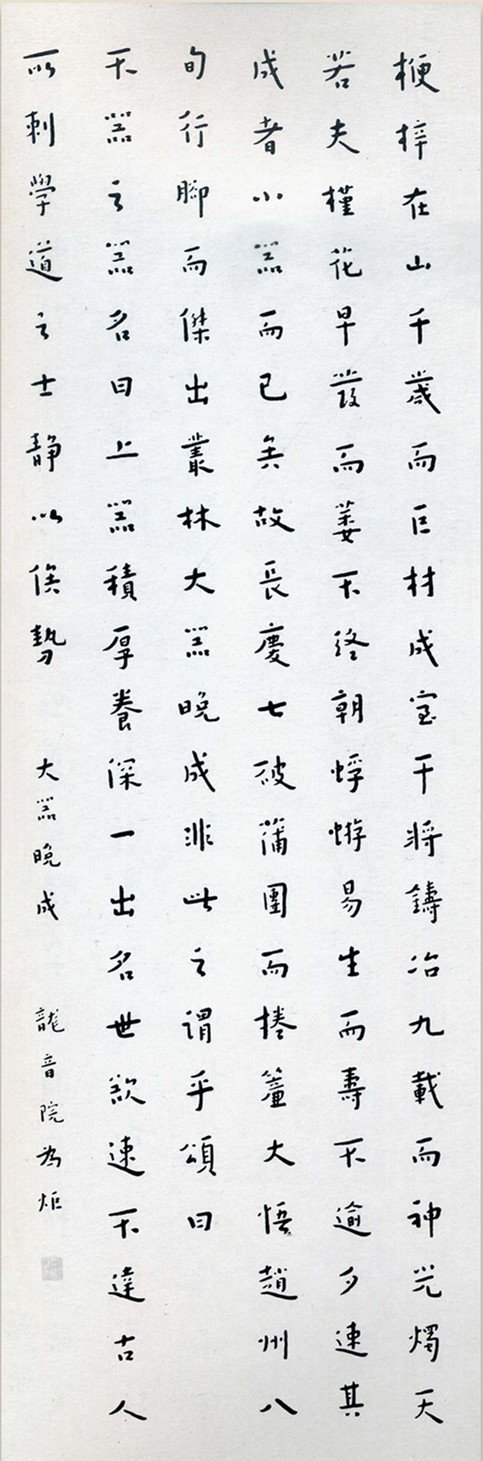 楩梓在山千歲而巨材成室干將鑄冶九載而神光燭天
若夫槿花早發而萎不終朝蜉蝣易生而壽不逾夕速其
成者小器而已矣故長慶七破蒲團而捲簾大悟趙州八
旬行腳而傑出叢林大器晚成非此之謂乎頌曰
不器之器名曰上器積厚養深一出名世欲速不達古人
所刺學道之士靜以俟勢 大器晚成 龍音院為炬